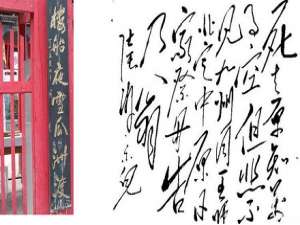 樓船夜雪瓜洲渡
死去原知万
事空但悲不
见九州同王师
北定中原日
家祭毋告
乃翁
陆游示儿